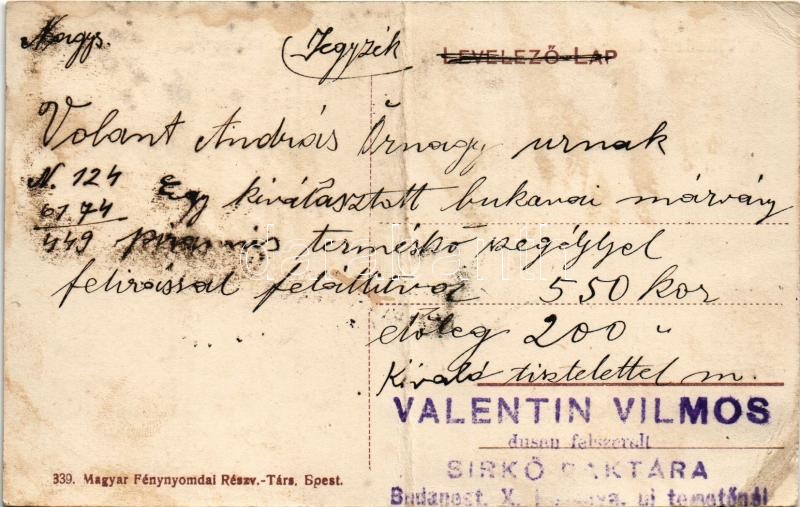 Nagys. Jegyzék LEVELEZŐ-LAP
Volant András Őrnagy urnak
N. 124 Egy kiválasztott bukavai márvány
61 74
449 piramis terméskő szegéllyel
felirással felállitva 550 kor
előleg 200 "
Kiváló tisztelettel m.
VALENTIN VILMOS
dusan felszerelt
SIRKŐ RAKTÁRA
Budapest, X. uj temetőnél
339. Magyar Fénynyomdai Részv.-Társ. Bpest.